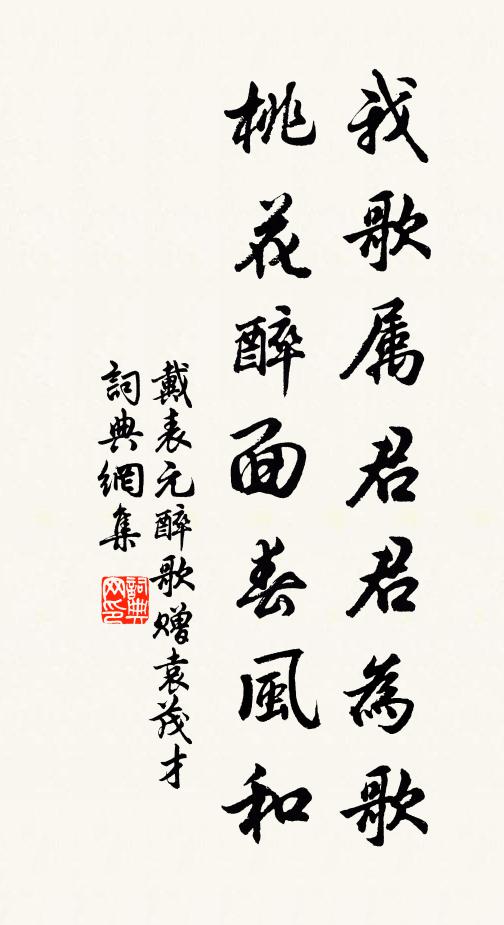 我歌属君君為歌
桃花醉面春風和
戴表元醉歌赠袁茂才
詞典網集
詞典網印